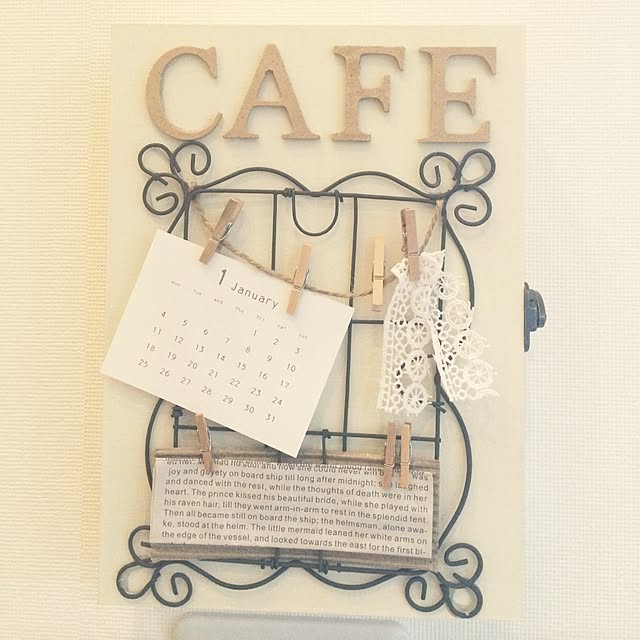 CAFE
1 January
mon tue wed thu fri sat sun
1 2 3
4 5 6 7 8 9 10
11 12 13 14 15 16 17
18 19 20 21 22 23 24
25 26 27 28 29 30 31
and how she could never
joy and gayety on board ship till long after midnight;
and danced with the rest, while the thoughts of death were in her
heart. The prince kissed his beautiful bride, while she played with
his raven hair, till they went arm-in-arm to rest in the splendid tent.
Then all became still on board the ship; the helmsman, alone awa-
ke, stood at the helm. The little mermaid leaned her white arms on
the edge of the vessel, and looked towards the east for the first bl-